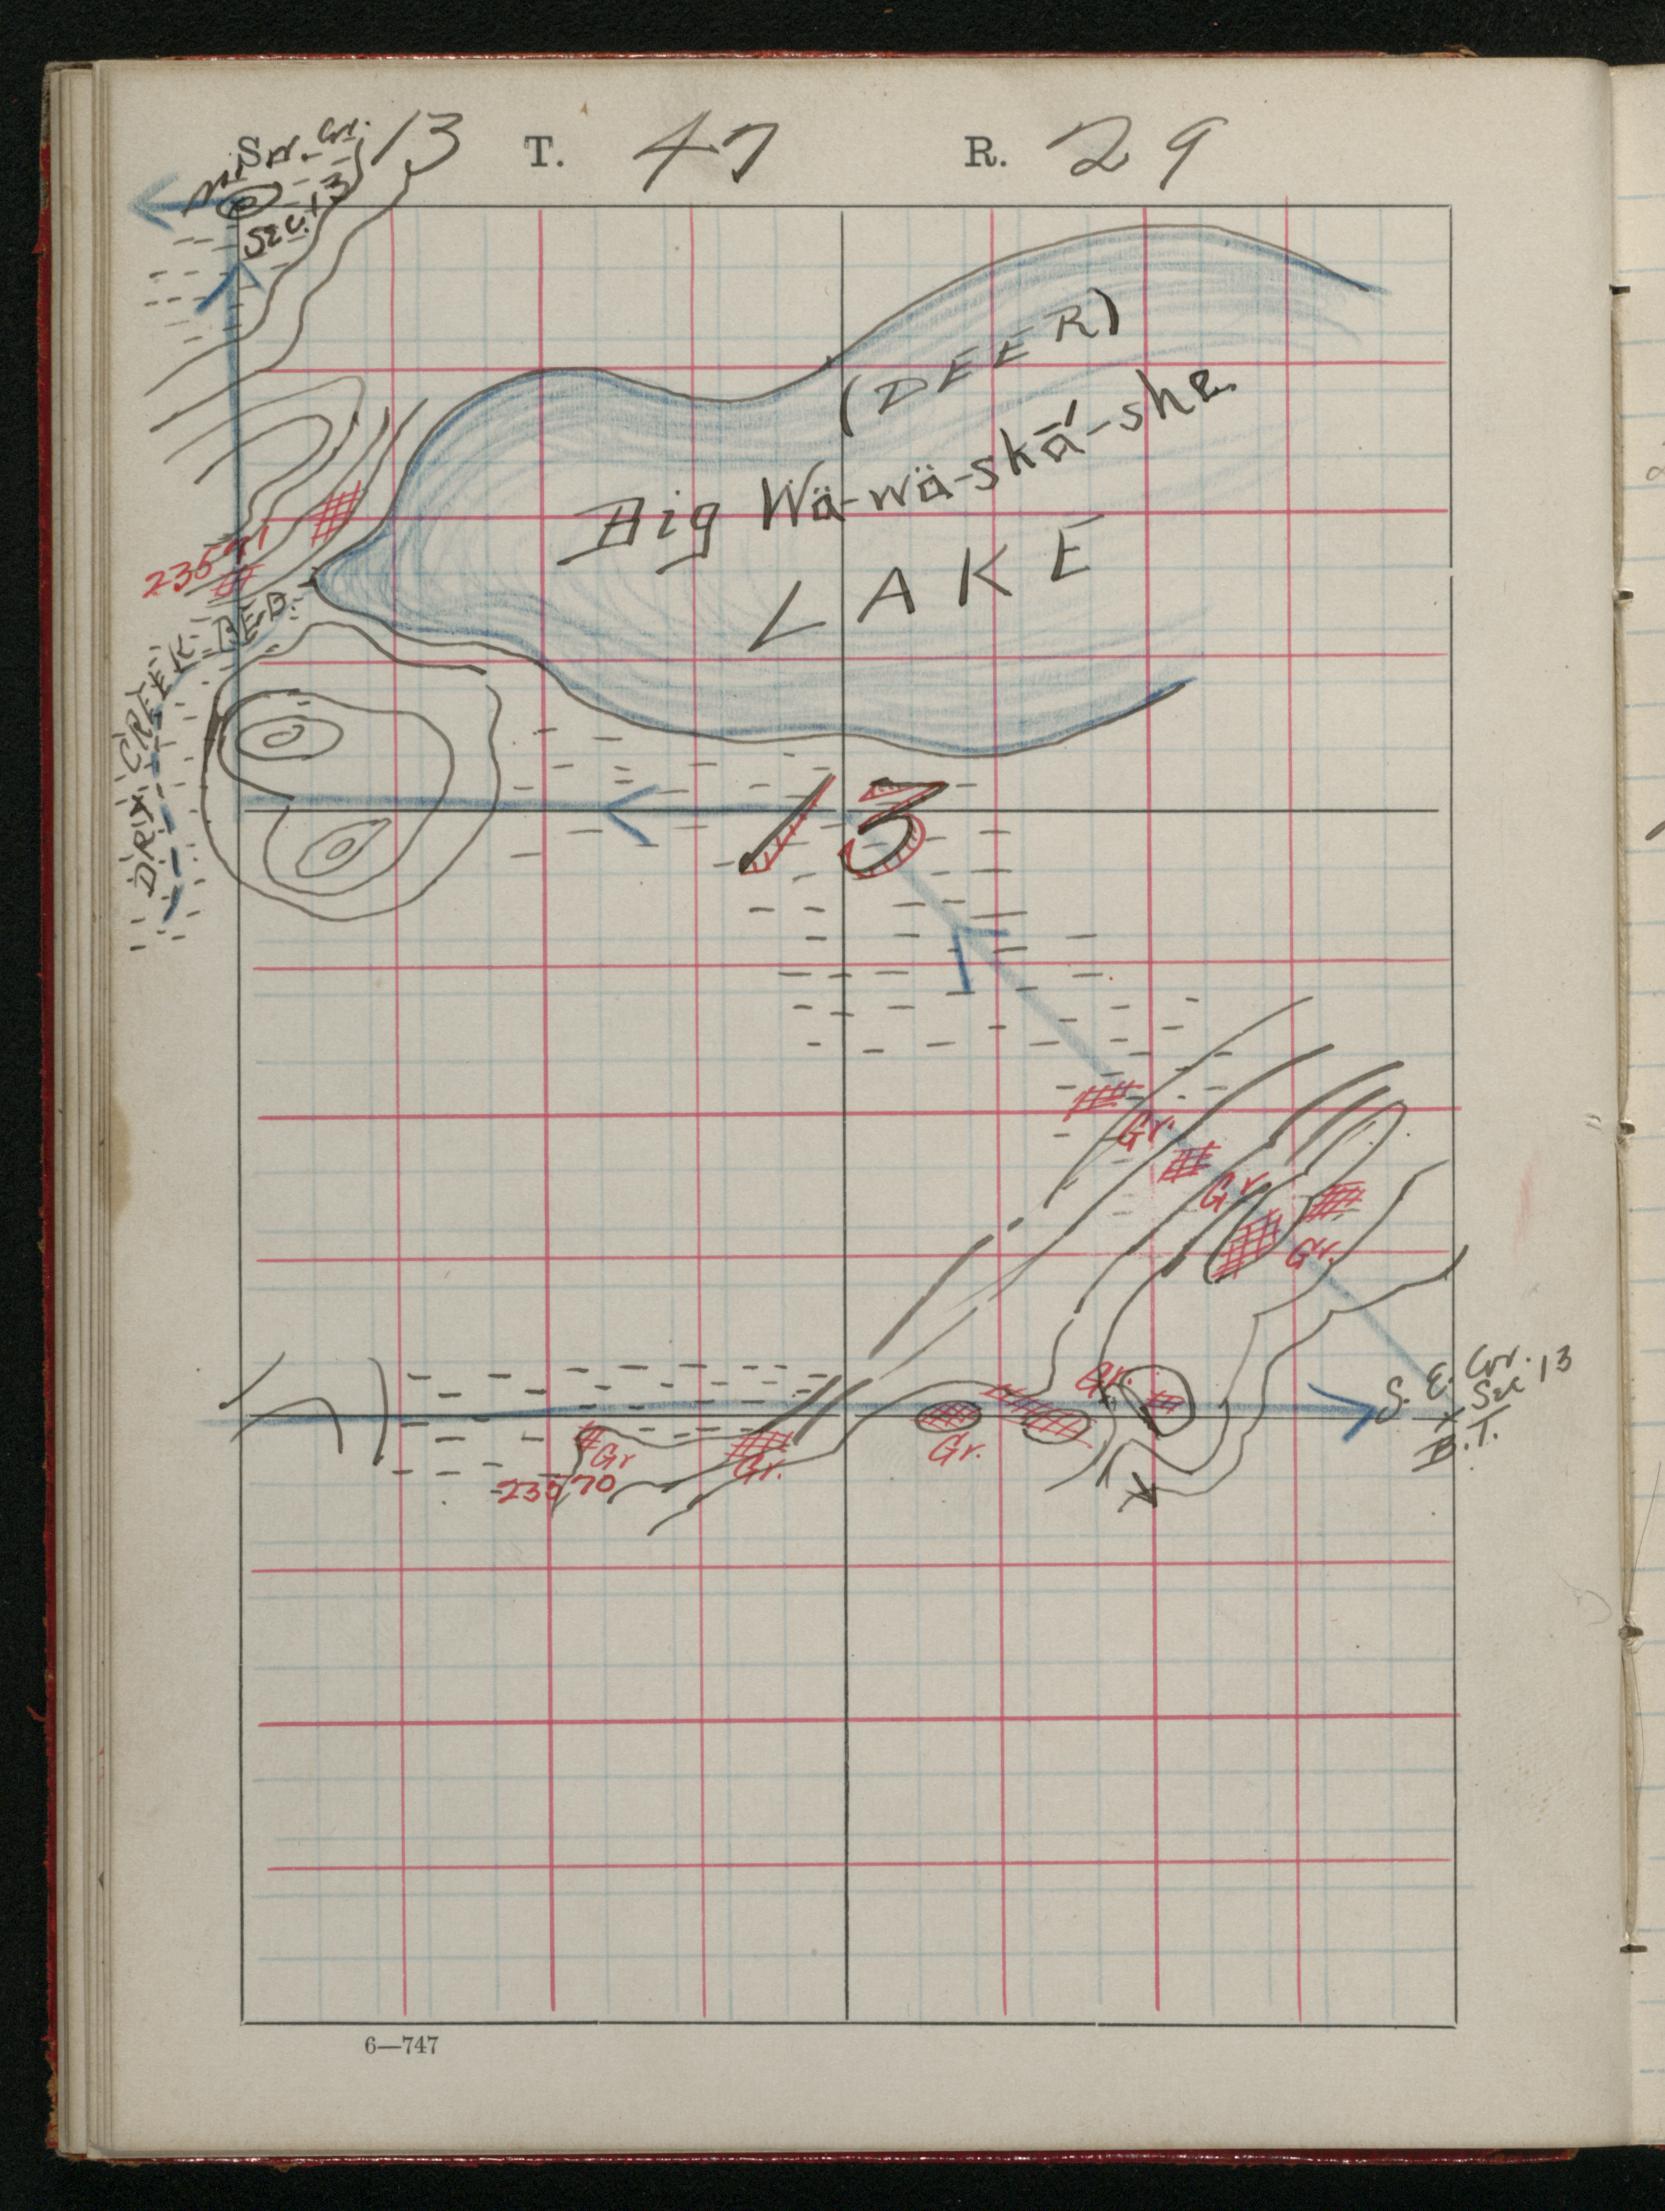 S. 13 T. 47 R. 29
N.W. Cor.
Sec. 13
(DEER)
Big Wä-wä-skā́-she
LAKE
23571
DRY CREEK BED
13
Gr.
Gr.
Gr.
Gr.
S. E. Cor.
Sec 13
B.T.
Gr
Gr.
Gr.
23570
6—747